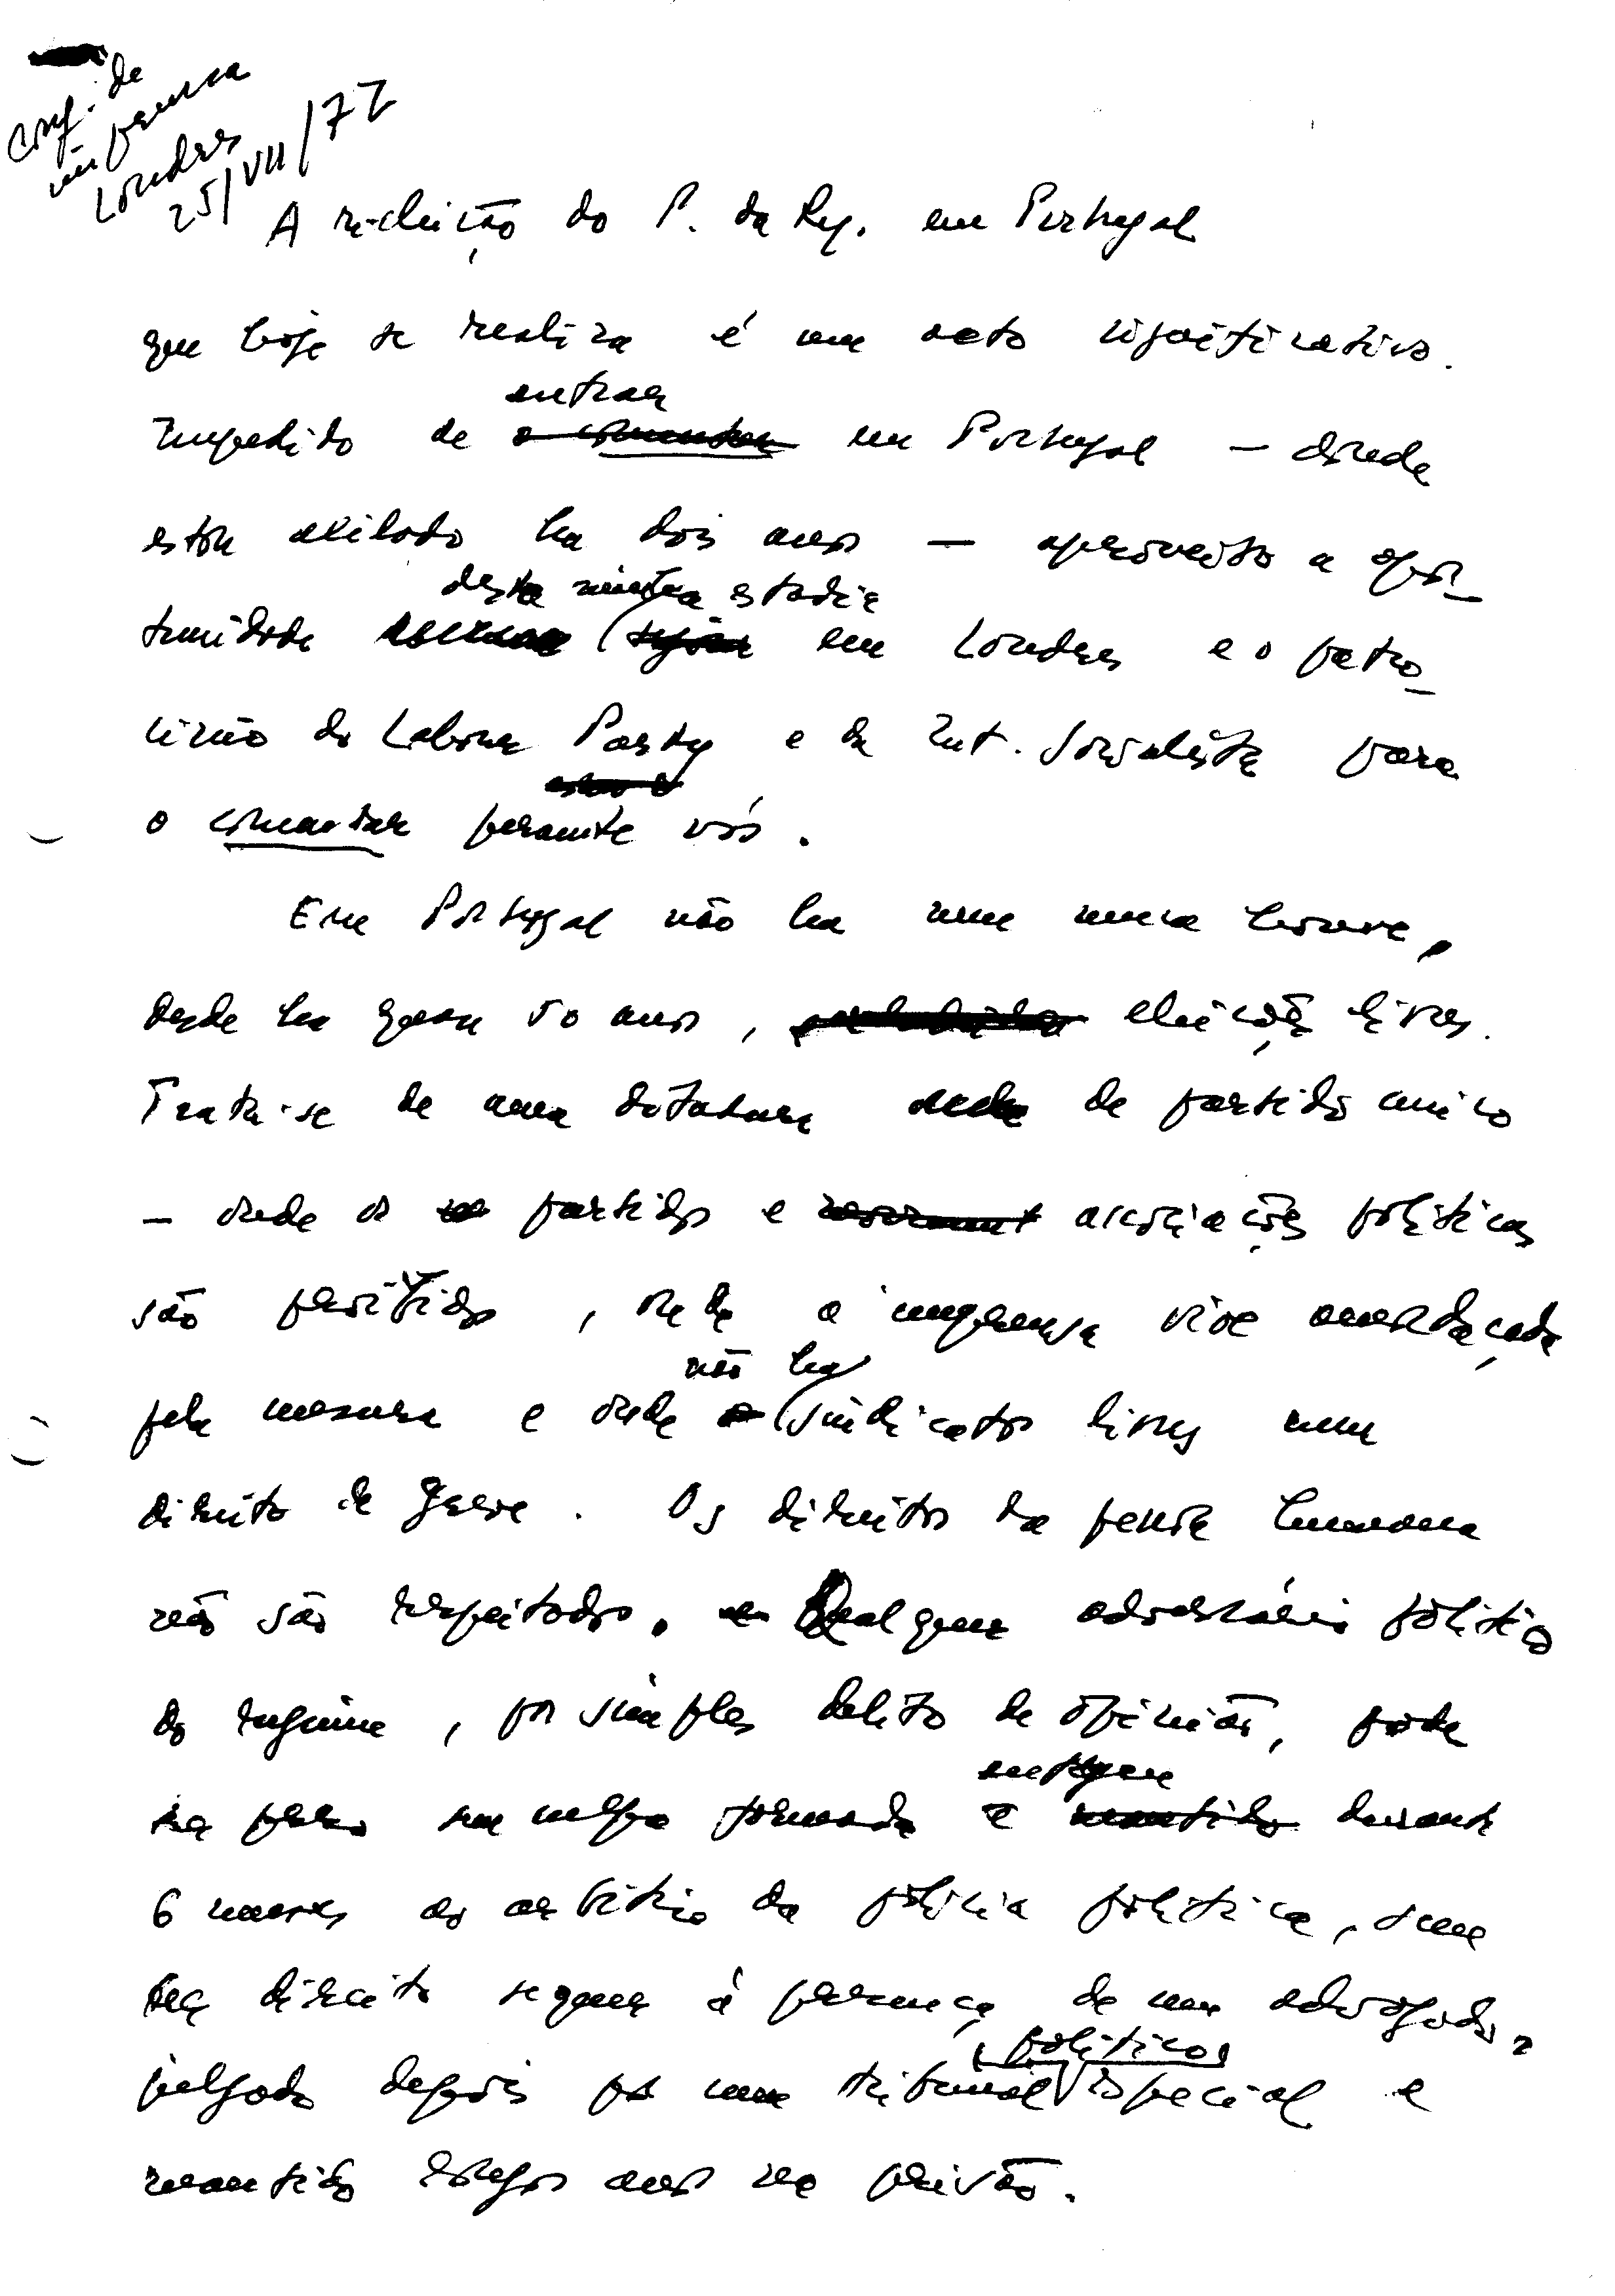 conf. de
imprensa
Londres
25/VII/72
A re-eleição do P. da Rep. em Portugal
que hoje se realiza é um acto significativo.
entrar
Impedido de o comentar em Portugal — donde
estou exilado ha dois anos — aproveito a opor-
desta minha estadia
tunidade em Londres e o patro-
cínio do Labour Party e da Int. Socialista para
o comentar perante vós.
Em Portugal não ha nem nunca houve,
desde ha quase 50 anos, eleições livres.
Trata-se de uma ditadura de partido unico
— onde os partidos e associações politicas
são proibidos, onde a imprensa vive amordaçada
não ha
pela censura e onde sindicatos livres nem
direito de greve. Os direitos da pessoa humana
não são respeitados. Qualquer adversário politico
do regime, por simples delito de opinião, pode
entregue
ser preso sem culpa formada e mantido durante
6 meses ao arbitrio da policia politica, sem
ter direito sequer á presença de um advogado,
politico,
julgado depois por um tribunal especial e
mantido longos anos na prisão.